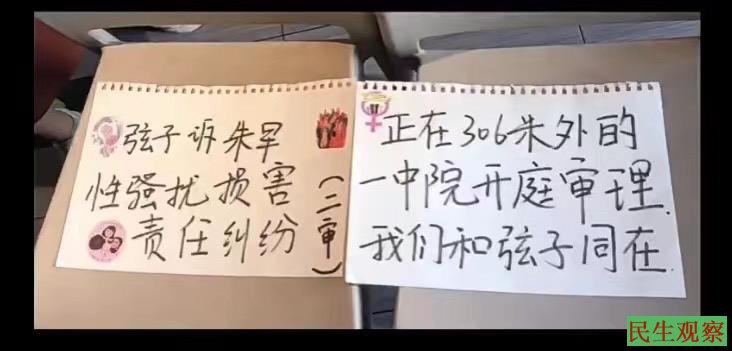 弦子诉朱军
性骚扰损害
责任纠纷
(二审)
正在306米外的
一中院开庭审理.
我们和弦子同在.
民生观察